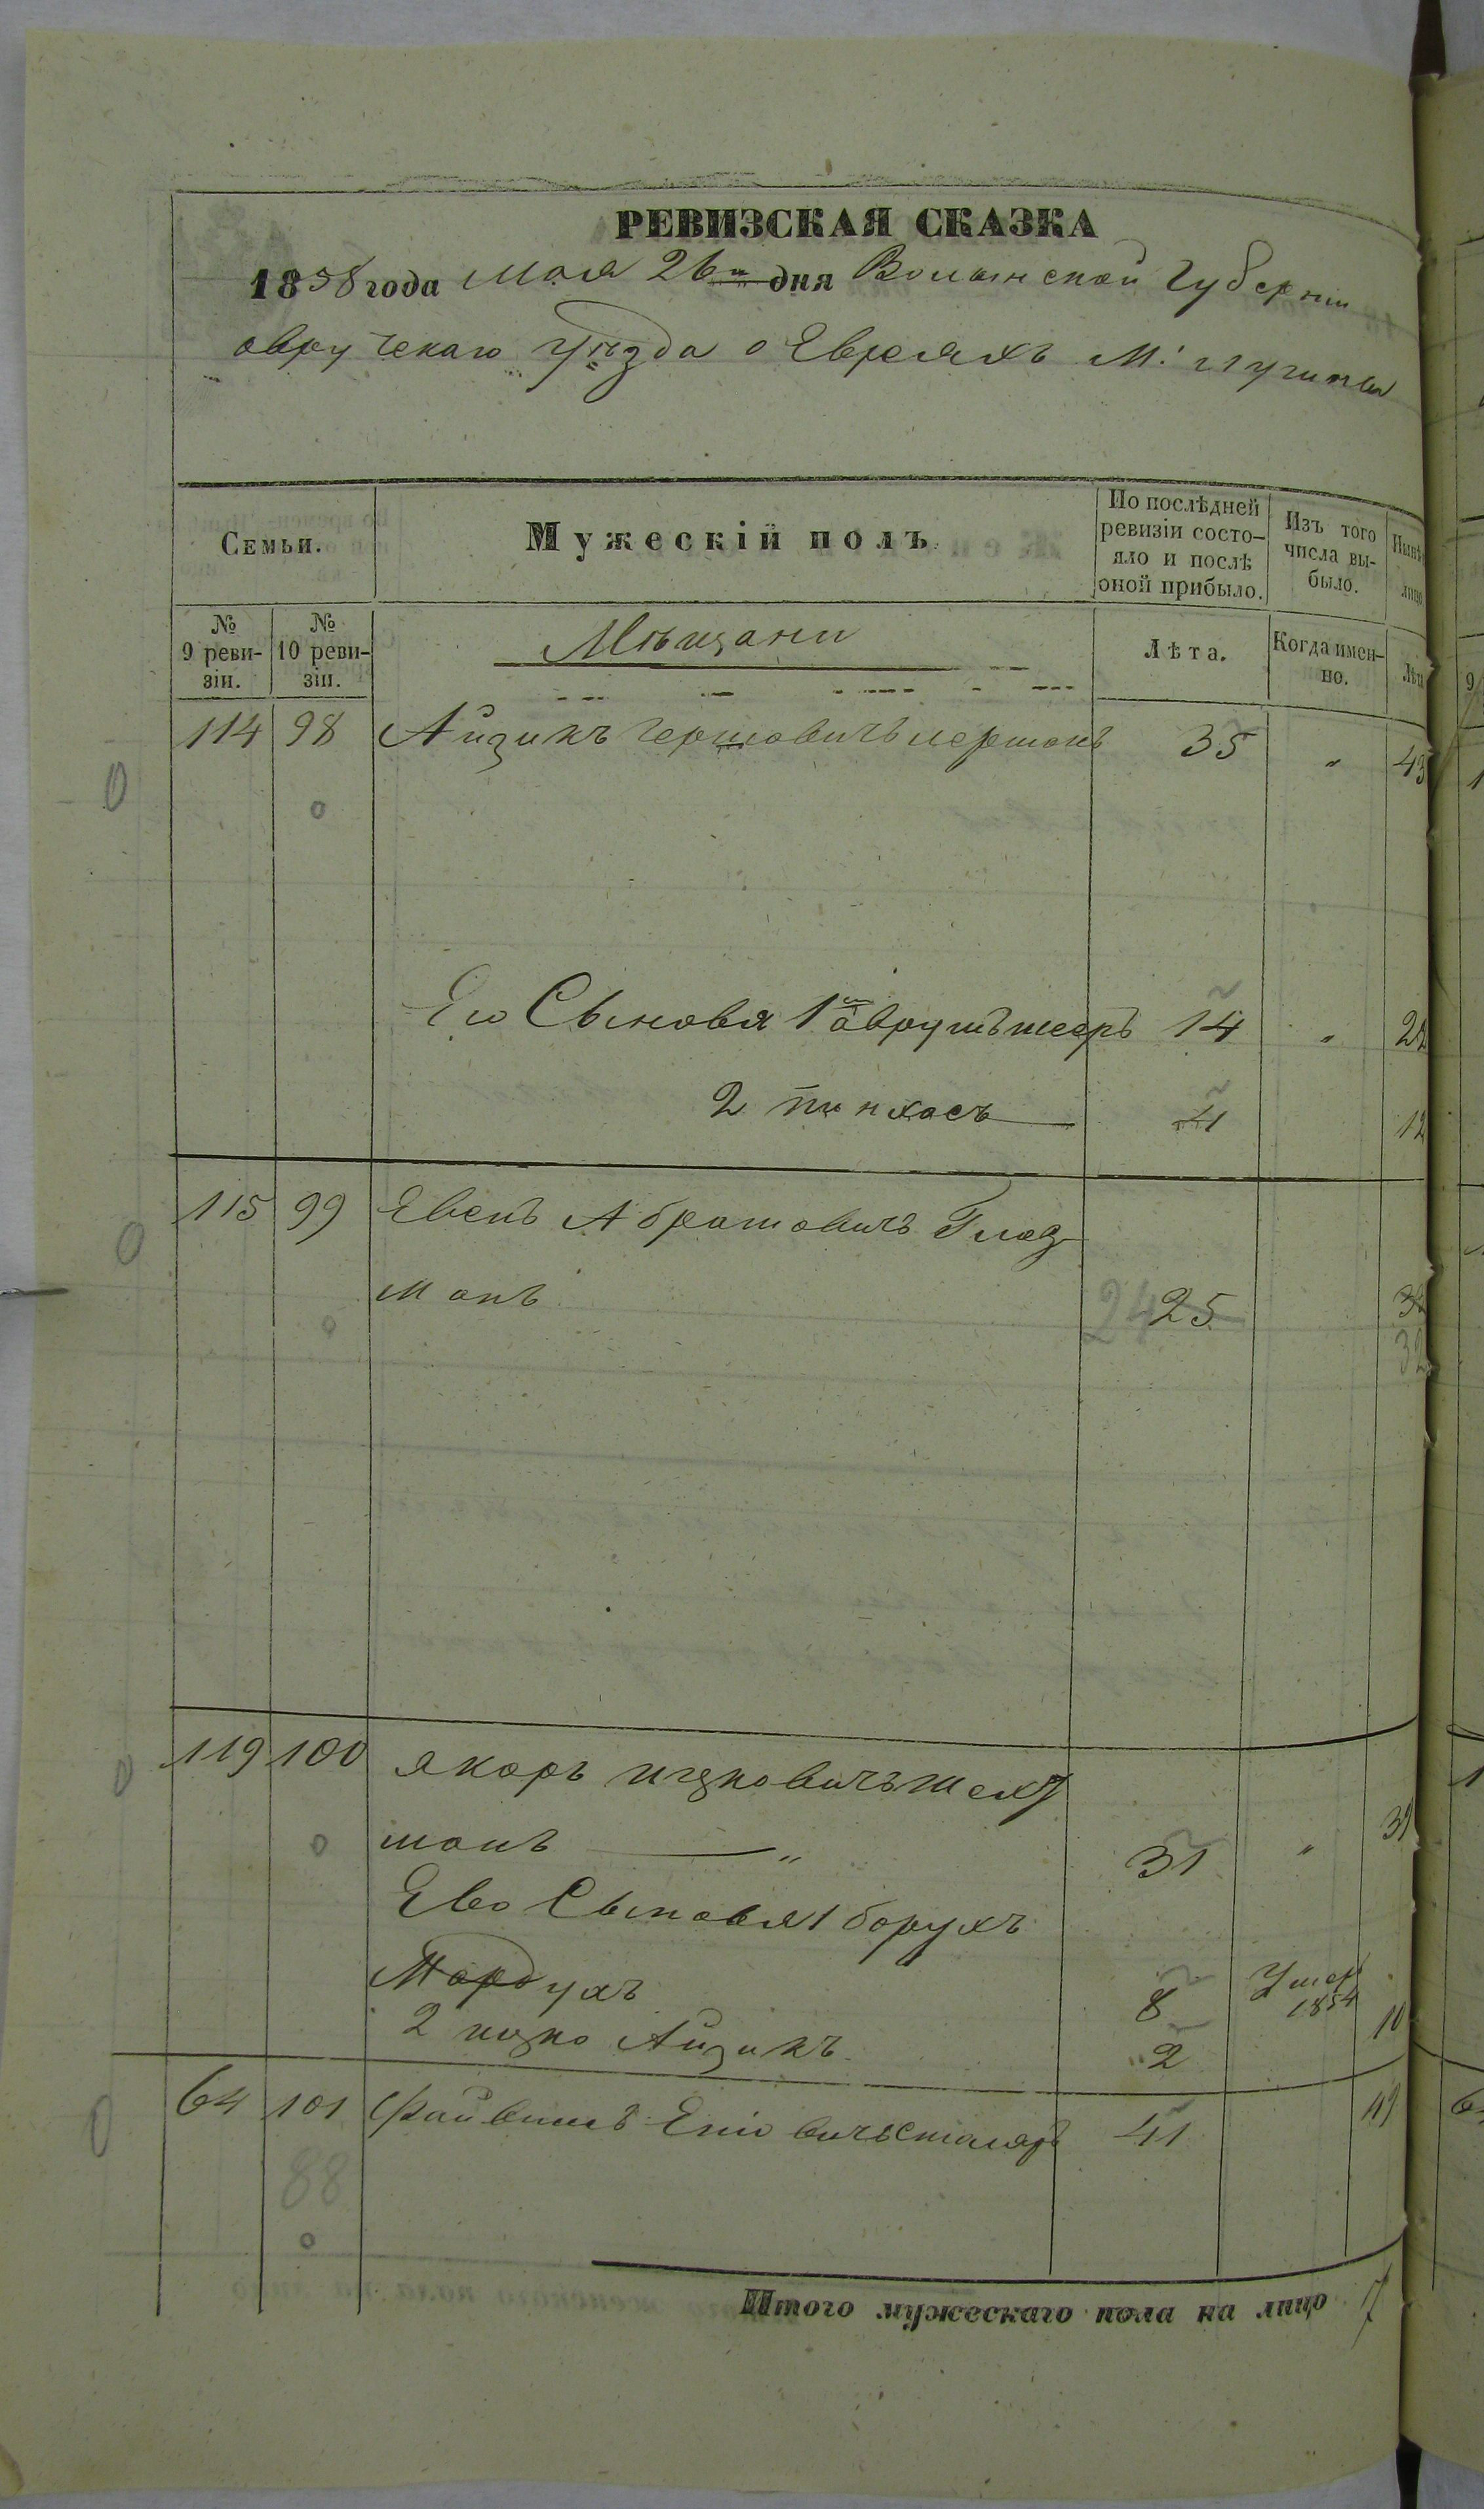 РЕВИЗСКАЯ СКАЗКА
1858 года Мая 26 дня Волынской Губерніи
овручскаго уѣзда о Евреяхъ М. Лугинъ
Семьи.
Мужескій полъ
По послѣдней ревизіи состо-яло и послѣ оной прибыло.
Изъ того числа вы-было.
Нынѣ
лицо
№ 9 реви-зіи.
№ 10 реви-зіи.
Мѣщани
Лѣта.
Когда имен-но.
Лѣт
114 98 Айзикъ Гершовичъ лерманъ 35 " 43
Его Сыновя 1й аврумъ мееръ 14 " 22
2 пинхасъ 4 12
115 99 Евель Абрамовичъ Глоз
манъ 24 25
32
119 100 якоръ ицковичъ Шехт
манъ " 31 " 39
Ево Сыновя 1 борухъ
Мордухъ 8 Умер 1854
2 ицко Айзикъ 2 10
64 101 Файвишъ Еніовичъ столяръ 41 49
88
Итого мужескаго пола на лицо 7